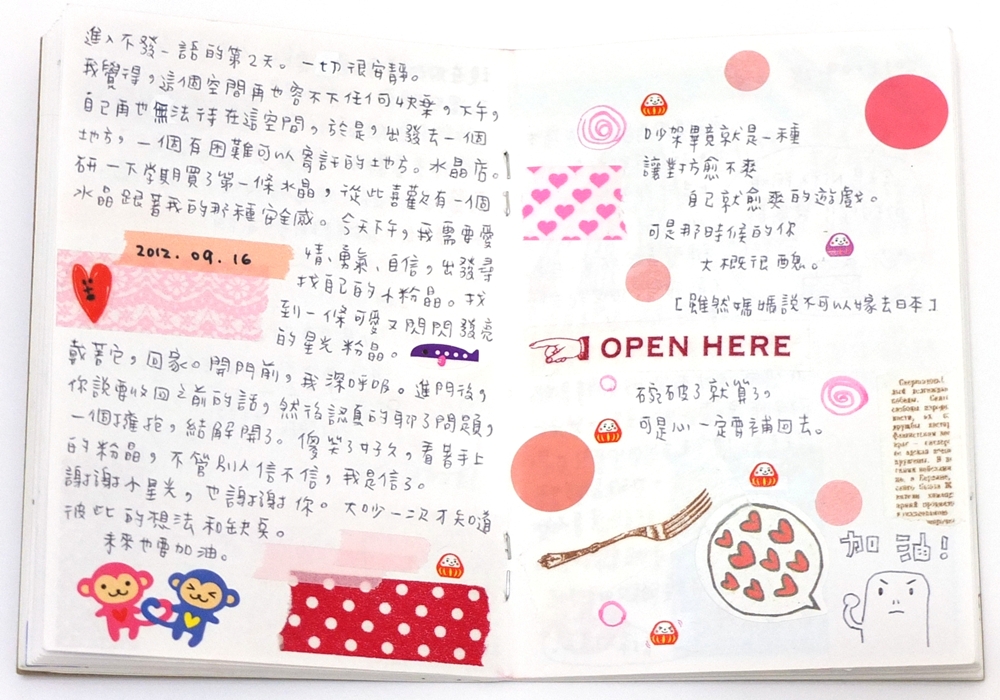 進入不發一語的第2天。一切很安靜。
我覺得,這個空間再也容不下任何快樂,下午,
自己再也無法待在這空間,於是,出發去一個
地方,一個有困難可以寄託的地方。水晶店。
研一下學期買了第一條水晶,從此喜歡有一個
水晶跟著我的那種安全感。今天下午,我需要愛
2012.09.16
情、勇氣、自信,出發尋
找自己的小粉晶。找
到一條可愛又閃閃發亮
的星光粉晶。
戴著它,回家。開門前,我深呼吸。進門後,
你說要收回之前的話,然後認真的聊了問題,
一個擁抱,結解開了。傻笑了好久,看著手上
的粉晶,不管別人信不信,我是信了。
謝謝小星光,也謝謝你。大吵一次才知道
彼此的想法和缺失。
未來也要加油。
吵架畢竟就是一種
讓對方愈不爽
自己就愈爽的遊戲。
可是那時候的你
大概很醜。
[雖然媽媽說不可以嫁去日本]
OPEN HERE
碗破了就算了。
可是心一定要補回去。
加油!